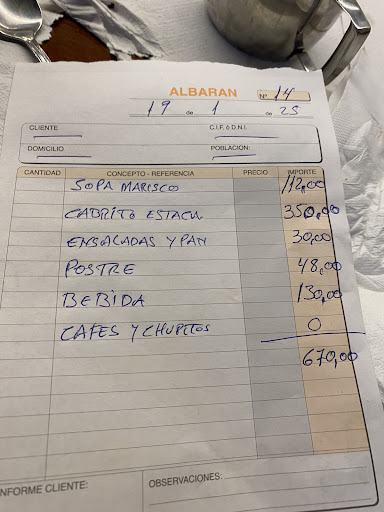 ALBARAN Nº 14
19 de 1 de 25
CLIENTE C.I.F. ó D.N.I.
DOMICILIO POBLACIÓN:
CANTIDAD CONCEPTO - REFERENCIA PRECIO IMPORTE
SOPA MARISCO 112,00
CABRITO ESTACA 350,00
ENSALADAS Y PAN 30,00
POSTRE 48,00
BEBIDA 130,00
CAFES Y CHUPITOS 0
670,00
NFORME CLIENTE: OBSERVACIONES: